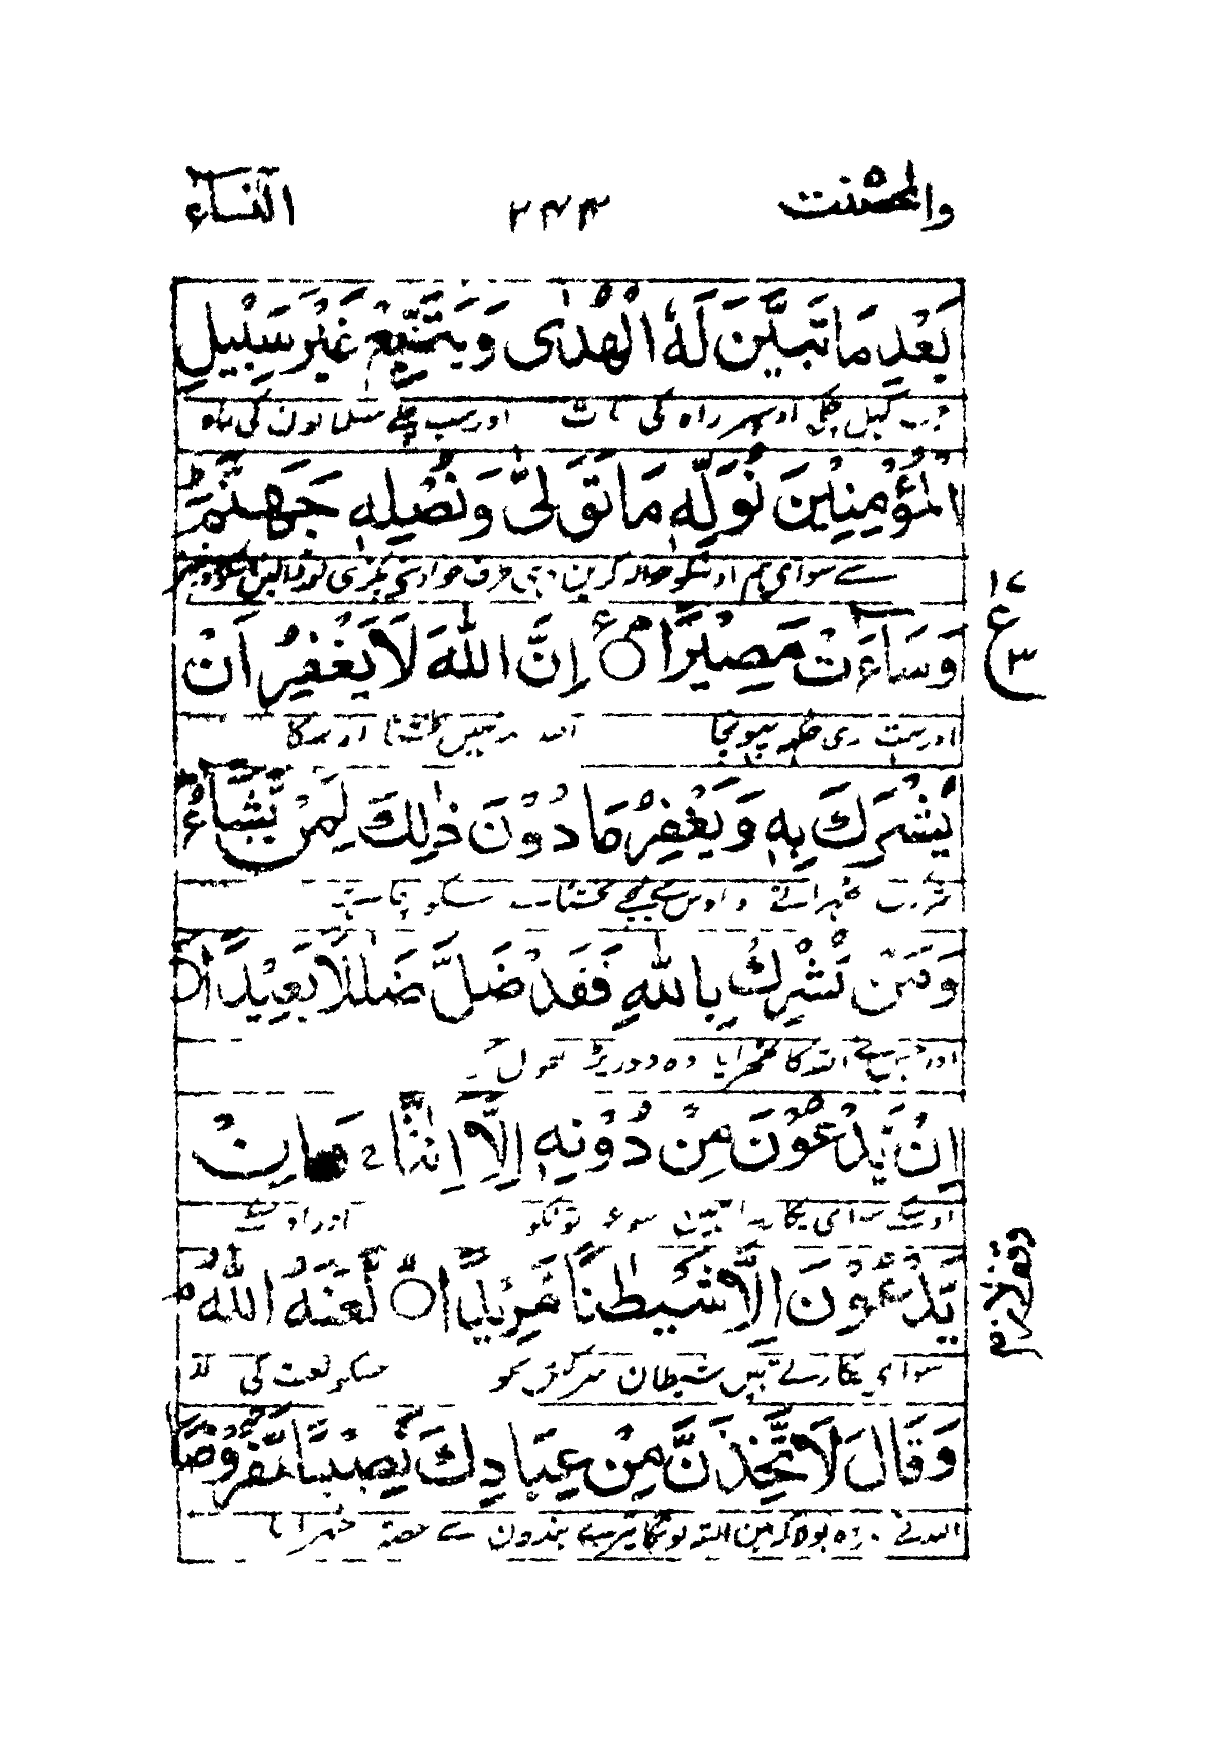 والمحصنت ۲۴۴ النساء
بَعْدِ مَا تَبَيَّنَ لَهُ الْهُدٰى وَيَتَّبِعْ غَيْرَ سَبِيْلِ
کھل چکی اوسپر راہ کی بات اور سب مسلمانون کی راہ
الْمُؤْمِنِيْنَ نُوَلِّهٖ مَا تَوَلّٰى وَنُصْلِهٖ جَهَنَّمَ
سے سوای ہم اوسکو حوالہ کرین وہی طرف جو اوسنے پکڑی
وَسَآءَتْ مَصِيْرًا ۝ اِنَّ اللّٰهَ لَا يَغْفِرُ اَنْ
اور بہت بری جگہ پہونچا اللہ نہیں بخشتا اوسکا
يُّشْرَكَ بِهٖ وَيَغْفِرُ مَا دُوْنَ ذٰلِكَ لِمَنْ يَّشَآءُ
شریک ٹھہرائے و اوس سے نیچے بخشتا ہے جسکو چاہے
وَمَنْ يُّشْرِكْ بِاللّٰهِ فَقَدْ ضَلَّ ضَلٰلًا بَعِيْدًا ۝
اور جسنے اللہ کا شریک ٹھہرایا وہ دور پڑا بھول کر
اِنْ يَّدْعُوْنَ مِنْ دُوْنِهٖ اِلَّا اِنٰثًا ۚ وَاِنْ
اوسکے سوای پکارتے ہیں سو عورتونکو اور اوسکے
يَّدْعُوْنَ اِلَّا شَيْطٰنًا مَّرِيْدًا ۝ لَّعَنَهُ اللّٰهُ ۘ
سوای پکارتے ہیں شیطان سرکش کو جسکو لعنت کی
وَقَالَ لَاَتَّخِذَنَّ مِنْ عِبَادِكَ نَصِيْبًا مَّفْرُوْضًا
اللہ نے وہ بولا کہ مین البتہ لونگا تیرے بندون سے حصہ ٹھہرایا
۱۷
ع
۳
وقف لازم